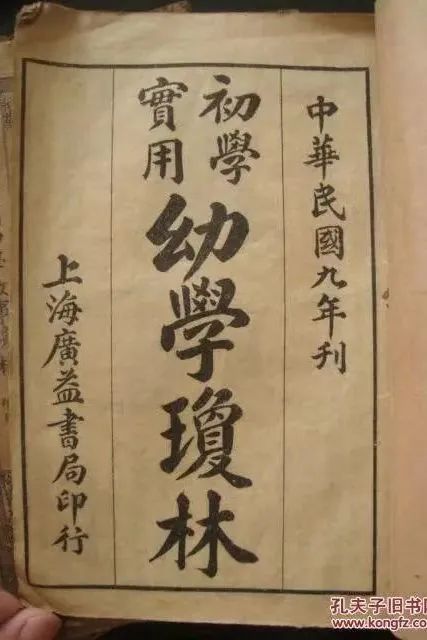 中華民國九年刊
初學
實用
幼學瓊林
上海廣益書局印行
孔夫子旧书网